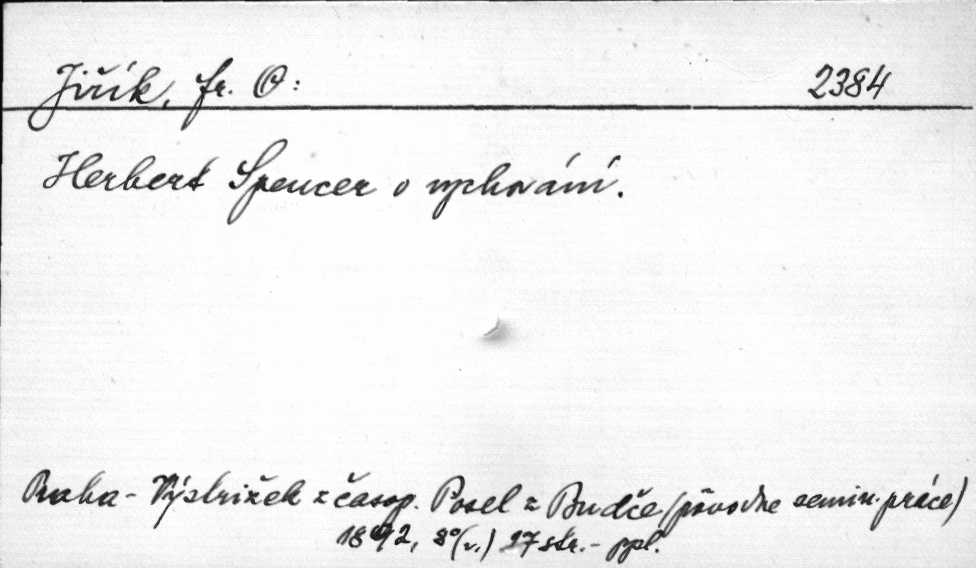 Jiřík, Fr. O: 2384
Herbert Spencer o vychování.
Praha - Výstrižek z časop. Posel z Budče (pôvodne semin. práce)
1892, 8° (v.) 27 str. - ppl.